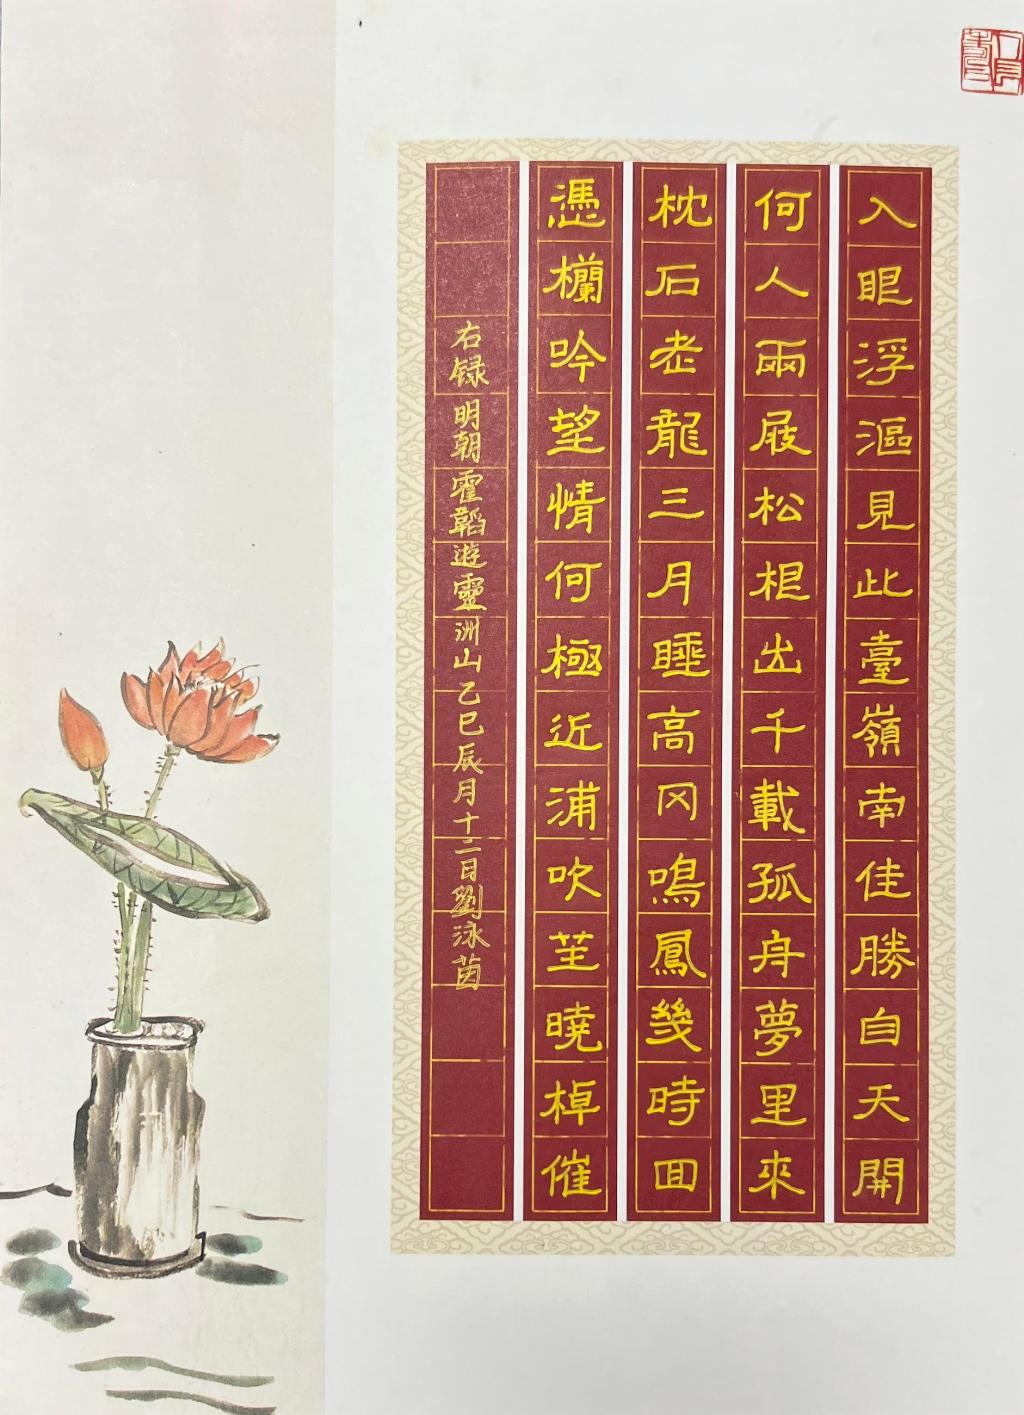 入眼浮漚見此臺嶺南佳勝自天開
何人兩屐松根出千載孤舟夢里來
枕石老龍三月睡高冈鳴鳳幾時回
憑欄吟望情何極近浦吹笙曉棹催
右録明朝霍韜遊靈洲山乙巳辰月十二日劉泳茵